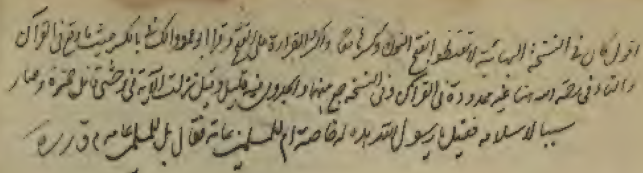 اقول كان فى النسخة البهائية لا تقنطوا بفتح النون وكسرها معا واكثر القراءة على الفتح وقرأ ابو عمرو والكسائى بالكسر حيث وقع فى القرآن
والتاء فى رحمة الله هنا غير ممدودة فى القرآن وفى النسخه جميعها والجرور فيه قليل وقيل نزلت الآية فى وحشى قاتل حمزة وصار
سببا لاسلامه فقيل يا رسول الله هذه له خاصة ام للمسلمين عامة فقال بل للمسلمين عامه